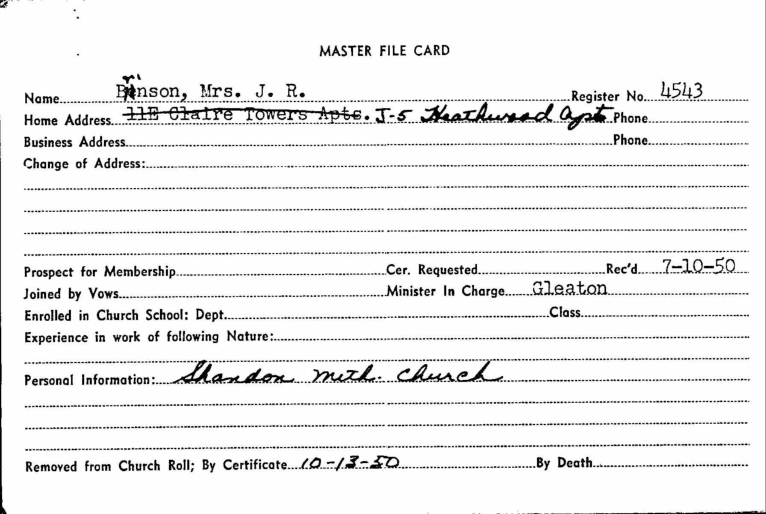 MASTER FILE CARD
Name Brinson, Mrs. J. R. Register No. 4543
Home Address 11E Claire Towers Apts. J-5 Heathwood Apts Phone
Business Address Phone
Change of Address:
Prospect for Membership Cer. Requested Rec'd 7-10-50
Joined by Vows Minister In Charge Gleaton
Enrolled in Church School: Dept. Class
Experience in work of following Nature:
Personal Information: Shandon Meth. Church
Removed from Church Roll; By Certificate 10-13-50 By Death